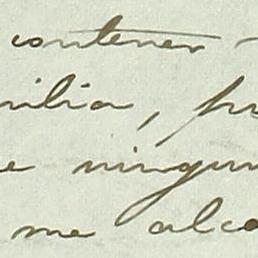 contener
milia, pr
e ningun
me alco